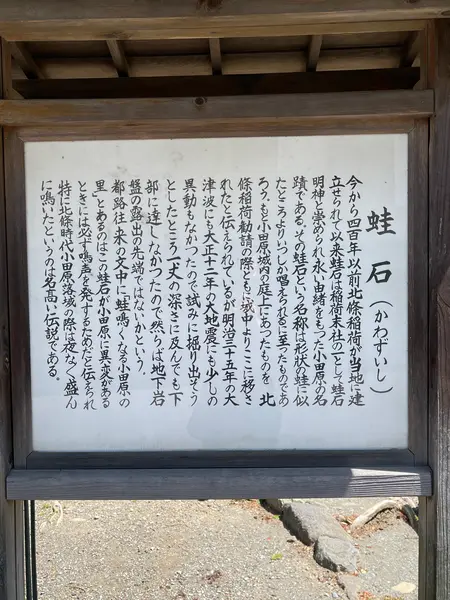 蛙石（かわずいし）
今から四百年以前北條稲荷が当地に建
立せられて以来蛙石は稲荷末社の一として蛙石
明神と崇められ永い由緒をもった小田原の名
蹟である。その蛙石という名称は形状の蛙に似
たところよりいつしか唱えられるに至ったものであ
ろう。もと小田原城内の庭上にあったものを 北
條稲荷勧請の際ともに城中よりここに移さ
れたと伝えられているが明治三十五年の大
津波にも大正十二年の大地震にも少しの
異動もなかったので試みに掘り出そう
としたところ一丈の深さに及んでも下
部に達しなかったので然らば地下岩
盤の露出の先端ではないかという。
都路往来の文中に「蛙鳴くなる小田原の
里」とあるのはこの蛙石が小田原に異変がある
ときには必ず鳴声を発するためだと伝えられ
特に北條時代小田原落城の際は夜なく盛ん
に鳴いたというのは名高い伝説である。